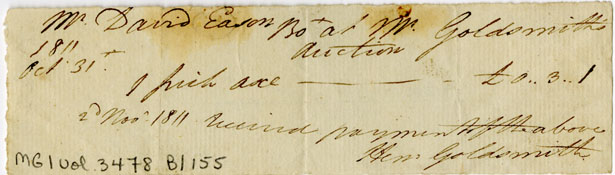 Mr. David Eason Bot at Mr. Goldsmiths
Auction
1811
Oct. 31t.
1 pick axe £0..3..1
2d Novr. 1811 received payment of the above
Hen Goldsmith
MG1 vol. 3478 B/155